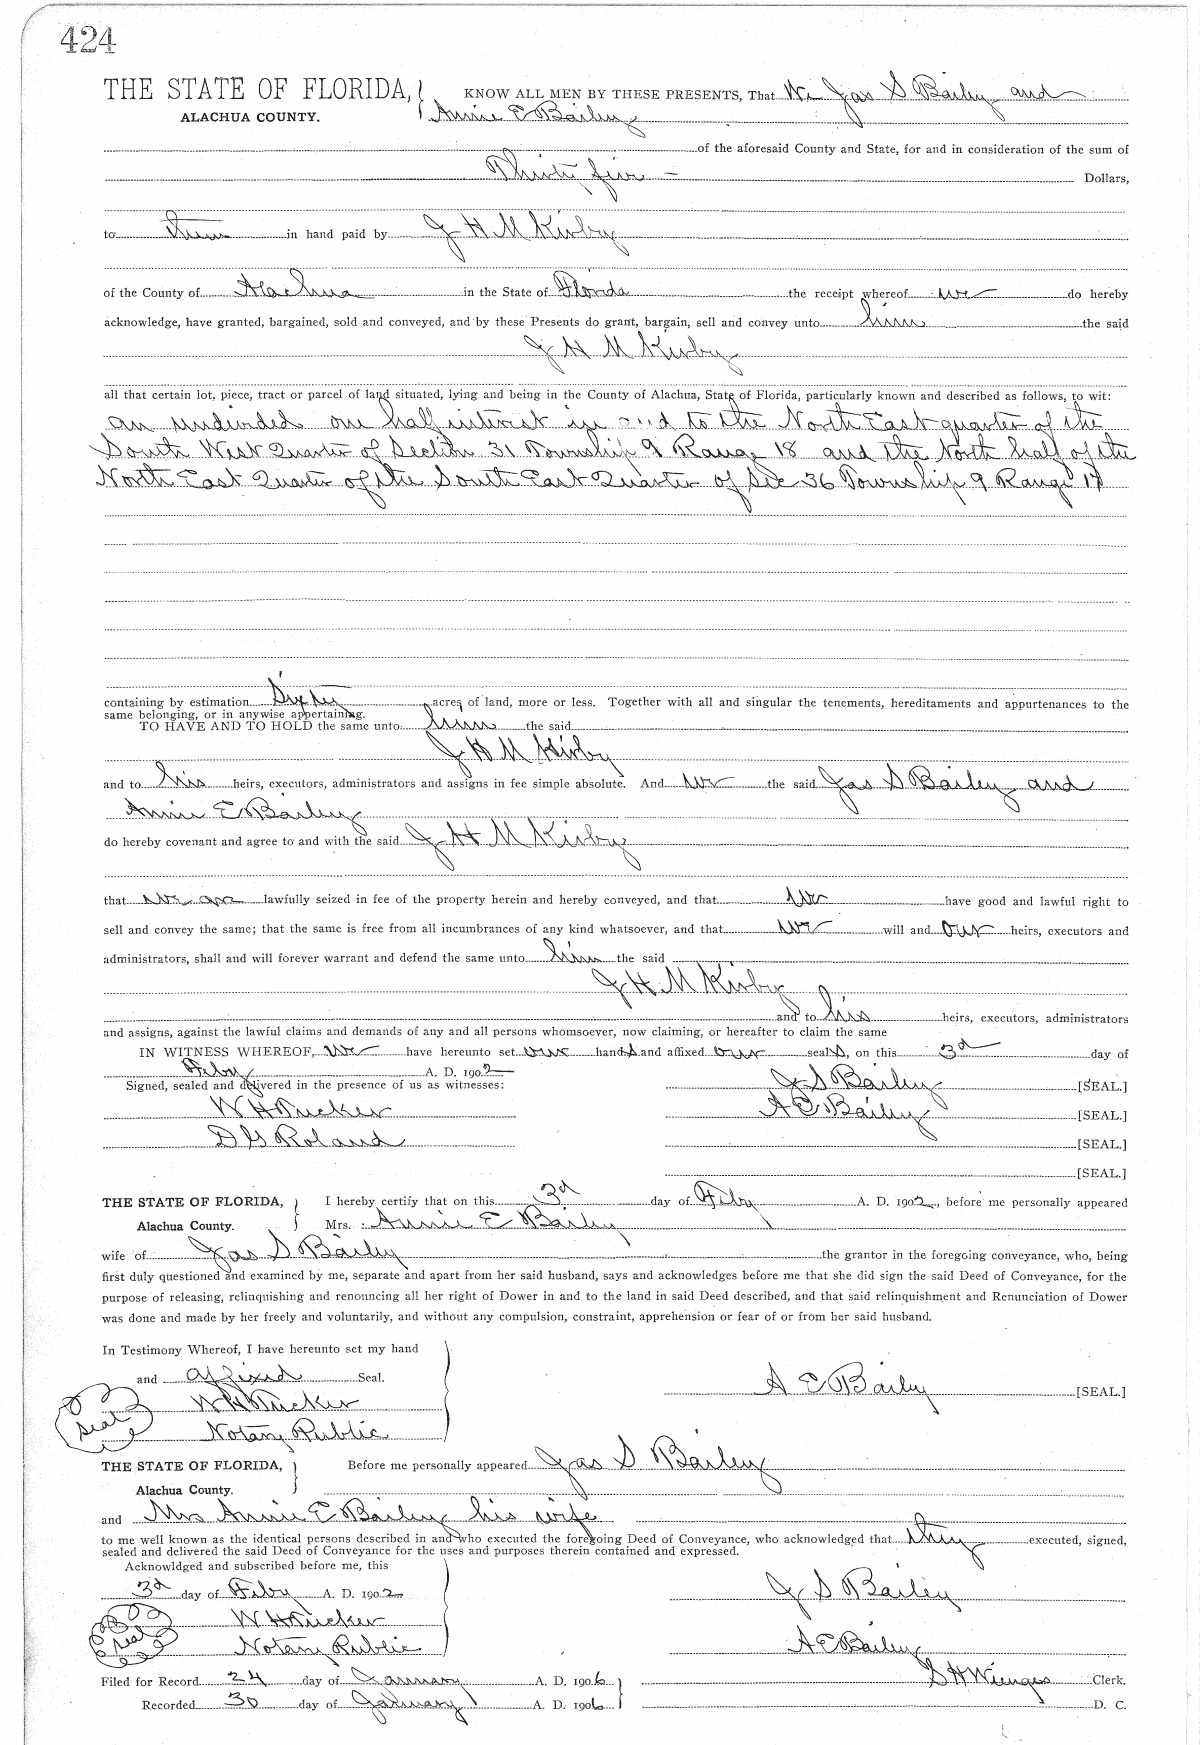 424
THE STATE OF FLORIDA, KNOW ALL MEN BY THESE PRESENTS, That We Jas S Bailey and
ALACHUA COUNTY. Annie E Bailey
of the aforesaid County and State, for and in consideration of the sum of
Thirty five – Dollars,
to them in hand paid by J H M Kirby
of the County of Alachua in the State of Florida the receipt whereof we do hereby
acknowledge, have granted, bargained, sold and conveyed, and by these Presents do grant, bargain, sell and convey unto him the said
J H M Kirby
all that certain lot, piece, tract or parcel of land situated, lying and being in the County of Alachua, State of Florida, particularly known and described as follows, to wit:
an undivided one half interest in and to the North East quarter of the
South West Quarter of Section 31 Township 9 Range 18 and the North half of the
North East Quarter of the South East Quarter of Sec 36 Township 9 Range 17
containing by estimation Sixty acres of land, more or less. Together with all and singular the tenements, hereditaments and appurtenances to the
same belonging, or in anywise appertaining.
TO HAVE AND TO HOLD the same unto him the said
J H M Kirby
and to his heirs, executors, administrators and assigns in fee simple absolute. And we the said Jas S Bailey and
Annie E Bailey
do hereby covenant and agree to and with the said J H M Kirby
that we are lawfully seized in fee of the property herein and hereby conveyed, and that we have good and lawful right to
sell and convey the same; that the same is free from all incumbrances of any kind whatsoever, and that we will and our heirs, executors and
administrators, shall and will forever warrant and defend the same unto him the said
J H M Kirby
and to his heirs, executors, administrators
and assigns, against the lawful claims and demands of any and all persons whomsoever, now claiming, or hereafter to claim the same
IN WITNESS WHEREOF, we have hereunto set our hands and affixed our seals, on this 3rd day of
Feby A. D. 1902
Signed, sealed and delivered in the presence of us as witnesses: J S Bailey [SEAL.]
W H Tucker A E Bailey [SEAL.]
D G Roland [SEAL.]
[SEAL.]
THE STATE OF FLORIDA, I hereby certify that on this 3d day of Feby A. D. 1902, before me personally appeared
Alachua County. Mrs. Annie E Bailey
wife of Jas S Bailey the grantor in the foregoing conveyance, who, being
first duly questioned and examined by me, separate and apart from her said husband, says and acknowledges before me that she did sign the said Deed of Conveyance, for the
purpose of releasing, relinquishing and renouncing all her right of Dower in and to the land in said Deed described, and that said relinquishment and Renunciation of Dower
was done and made by her freely and voluntarily, and without any compulsion, constraint, apprehension or fear of or from her said husband.
In Testimony Whereof, I have hereunto set my hand
and affixed Seal. A E Bailey [SEAL.]
W H Tucker
Seal Notary Public
THE STATE OF FLORIDA, Before me personally appeared Jas S Bailey
Alachua County.
and Mrs Annie E Bailey his wife
to me well known as the identical persons described in and who executed the foregoing Deed of Conveyance, who acknowledged that they executed, signed,
sealed and delivered the said Deed of Conveyance for the uses and purposes therein contained and expressed.
Acknowldged and subscribed before me, this
3d day of Feby A. D. 1902 J S Bailey
W H Tucker
Seal Notary Public A E Bailey
Filed for Record 24 day of January A. D. 1906 S H Wienges Clerk.
Recorded 30 day of January A. D. 1906 D. C.